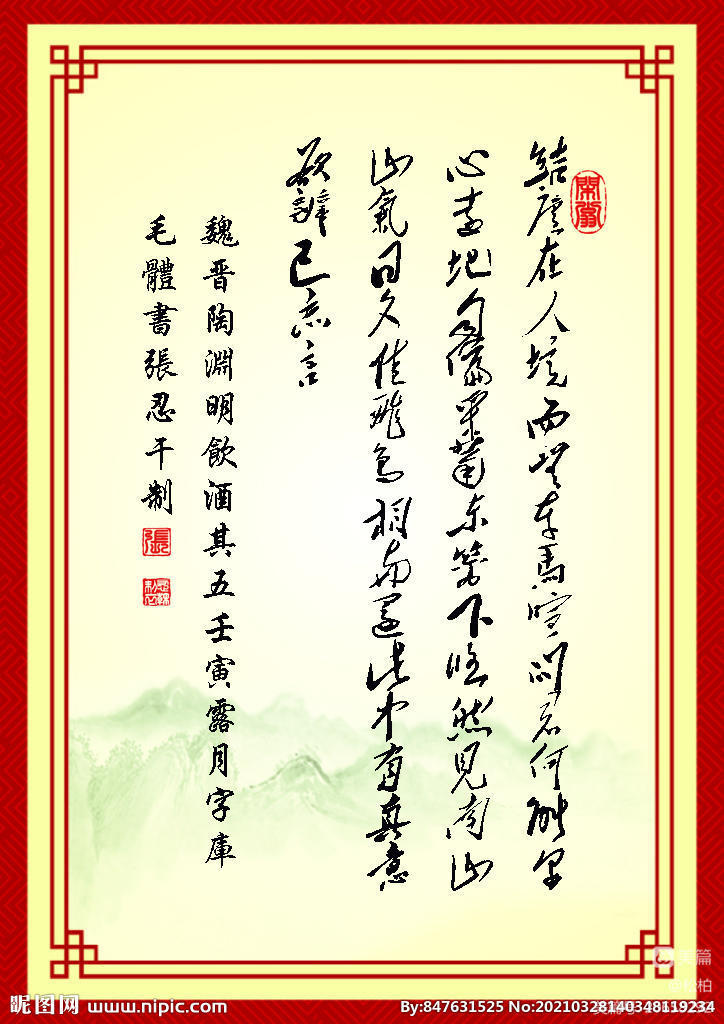 結廬在人境而無車馬喧問君何能尔
心遠地自偏采菊东篱下悠然見南山
山氣日夕佳飛鳥相与還此中有真意
欲辯已忘言
魏晋陶淵明飲酒其五壬寅露月字庫
毛體書張忍干制
張
美篇
@松柏
昵图网 www.nipic.com
By:847631525 No:20210328140348119234